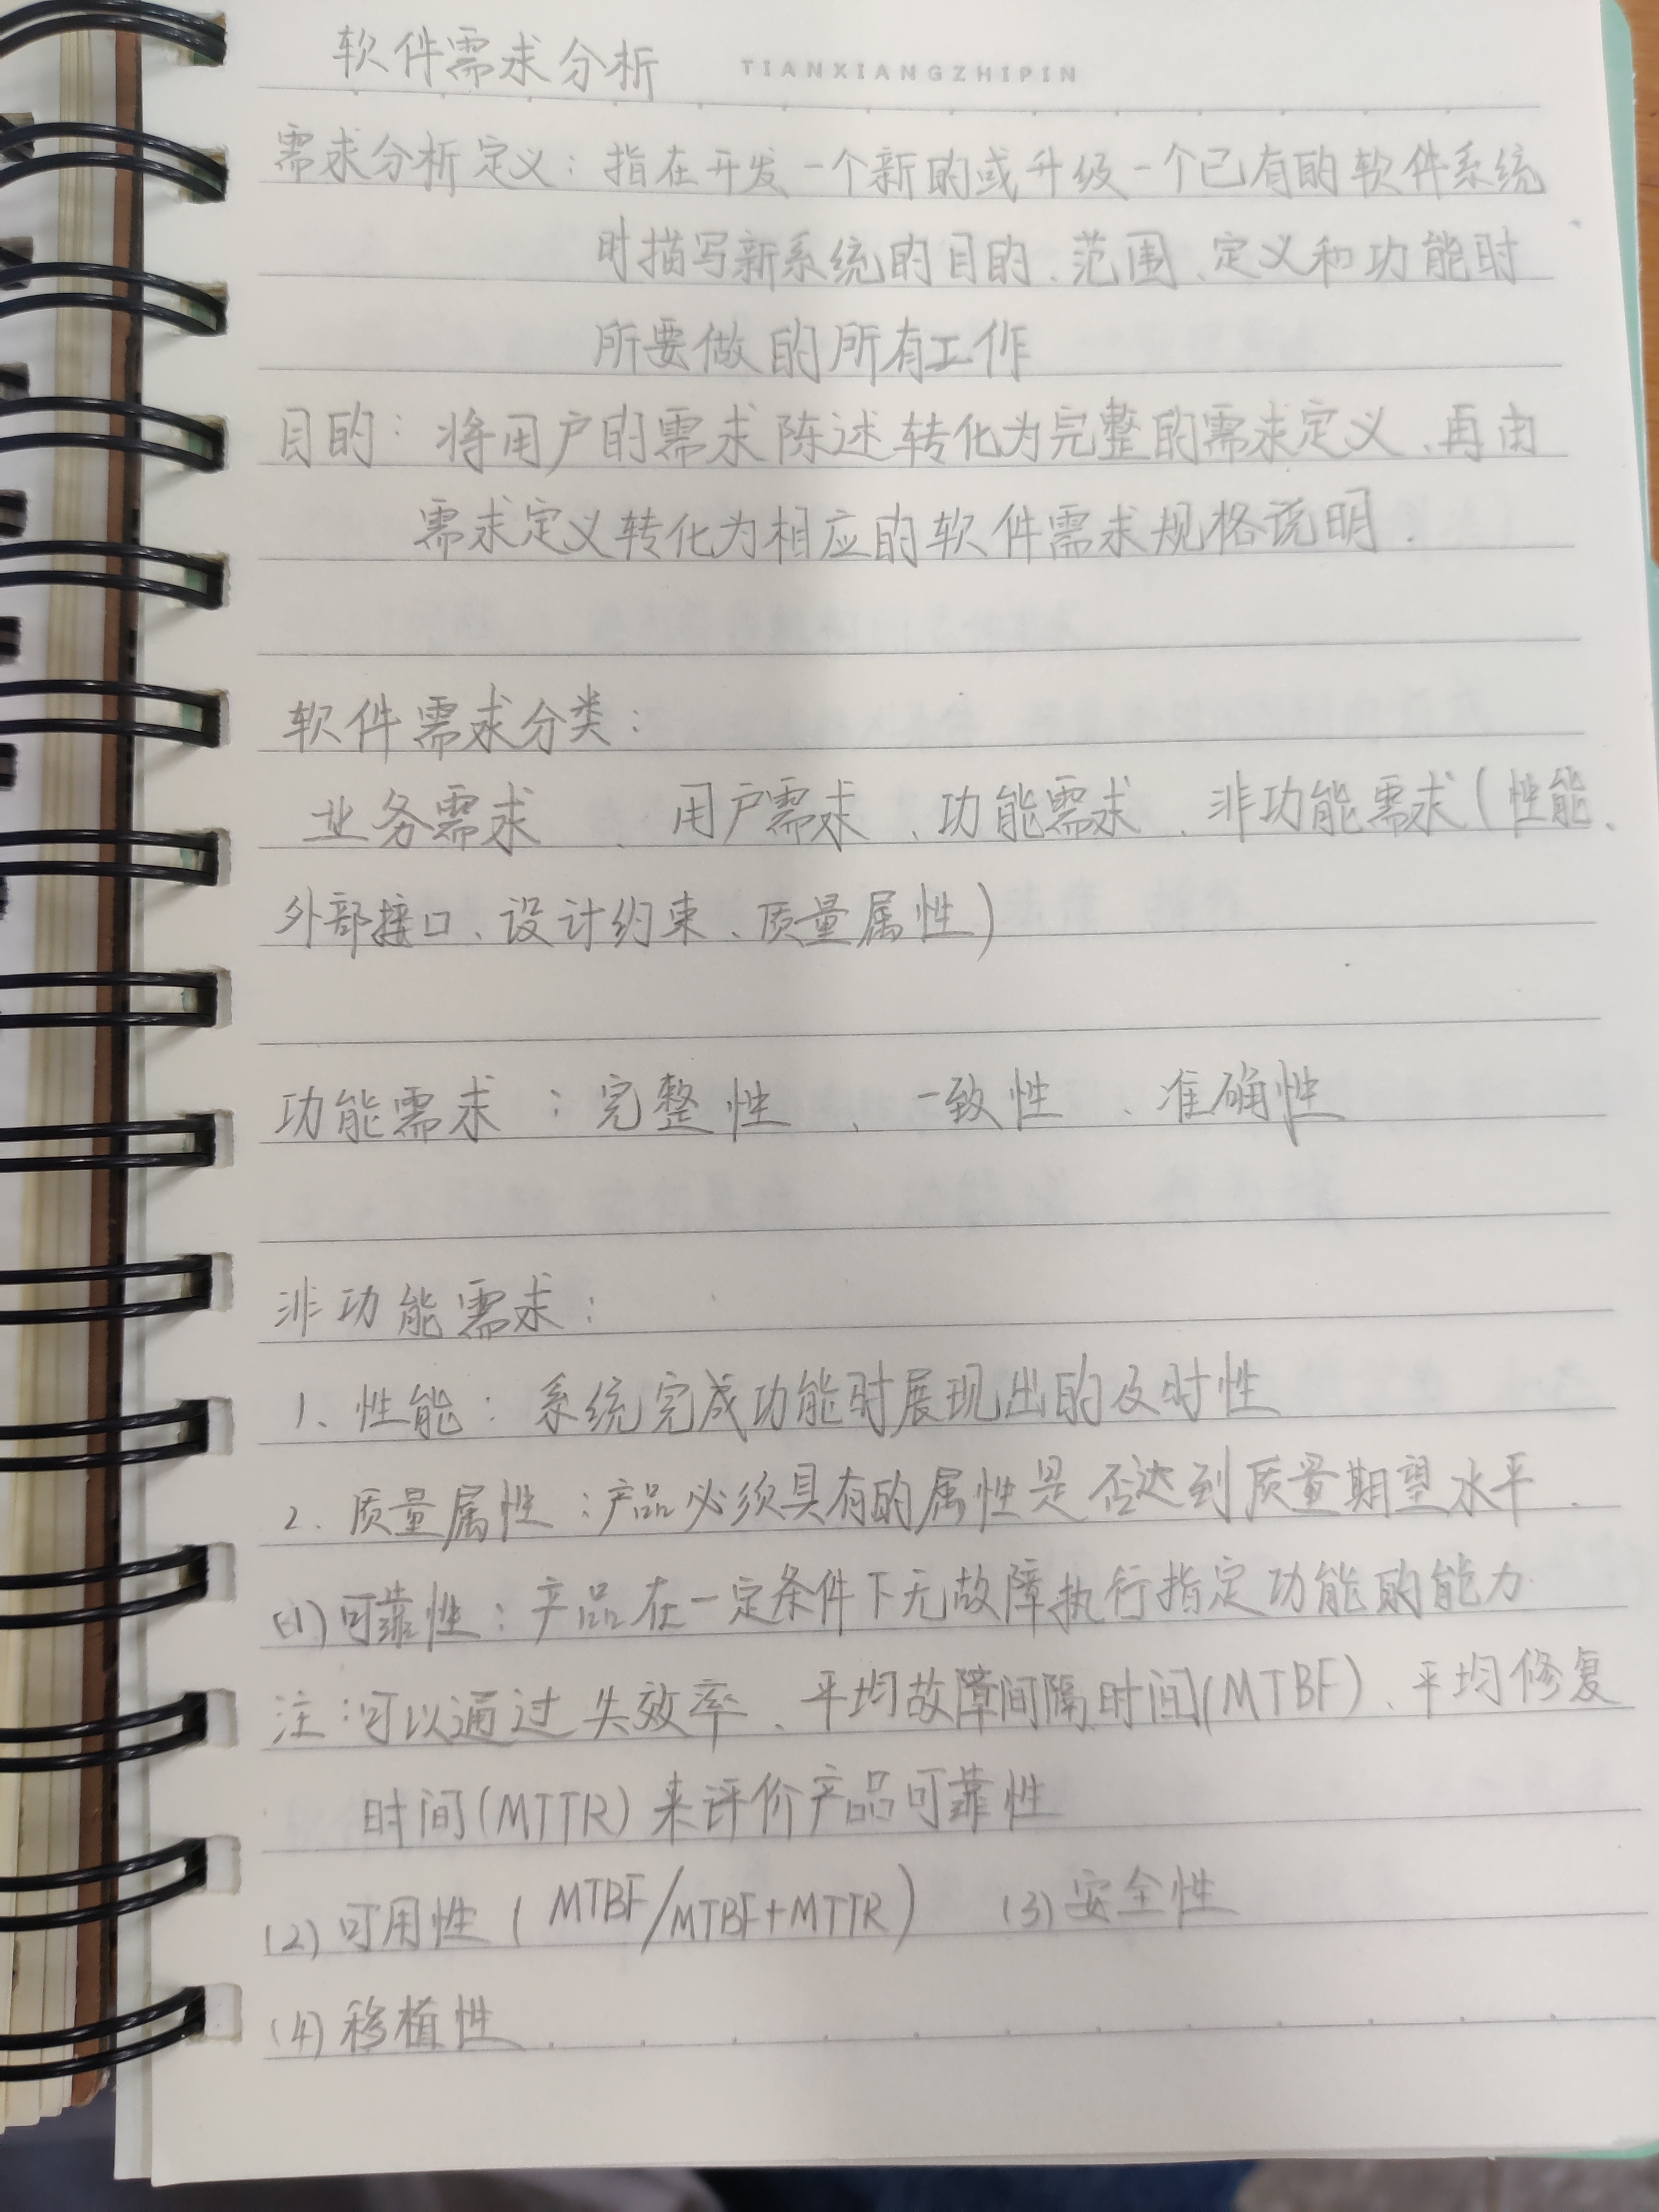 软件需求分析 TIANXIANGZHIPIN
需求分析定义：指在开发一个新的或升级一个已有的软件系统
时描写新系统的目的、范围、定义和功能时
所要做的所有工作
目的：将用户的需求陈述转化为完整的需求定义、再由
需求定义转化为相应的软件需求规格说明.
软件需求分类：
业务需求 、 用户需求 、功能需求 、非功能需求(性能、
外部接口、设计约束、质量属性)
功能需求 ：完整性 、 一致性 、准确性
非功能需求：
1、性能：系统完成功能时展现出的及时性
2. 质量属性：产品必须具有的属性是否达到质量期望水平.
(1)可靠性：产品在一定条件下无故障执行指定功能的能力
注：可以通过失效率、平均故障间隔时间(MTBF)、平均修复
时间(MTTR)来评价产品可靠性
(2)可用性(MTBF/MTBF+MTTR) (3)安全性
(4)移植性